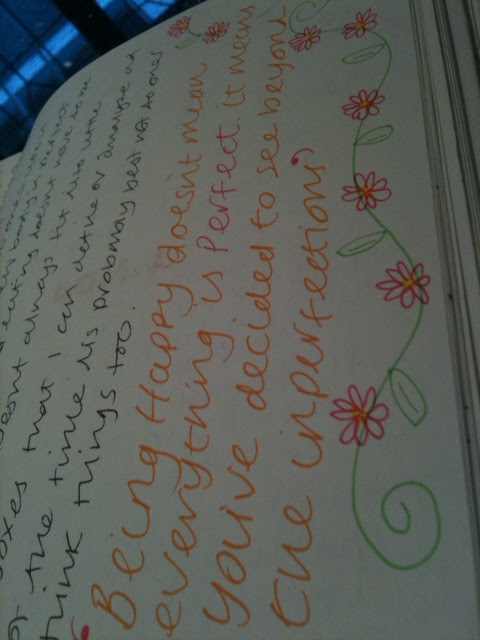 eating doesn't have to be
doesn't always fit into little
boxes that I can define or analyse all
of the time. It's probably best not to over
think things too.
'Being Happy doesn't mean
everything is Perfect. It means
you've decided to see beyond
the inperfections'